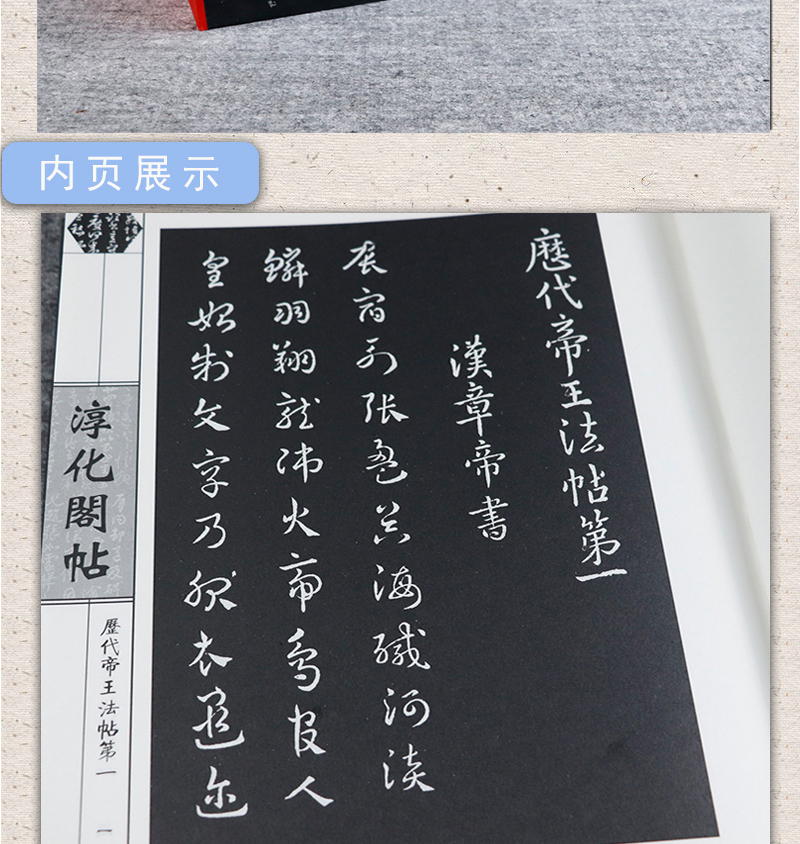 内页展示
歷代帝王法帖第一
漢章帝書
辰宿列張盈昃海鹹河淡
鱗羽翔龍師火帝鳥官人
皇始制文字乃服衣遐迩
淳化閣帖
歷代帝王法帖第一
一